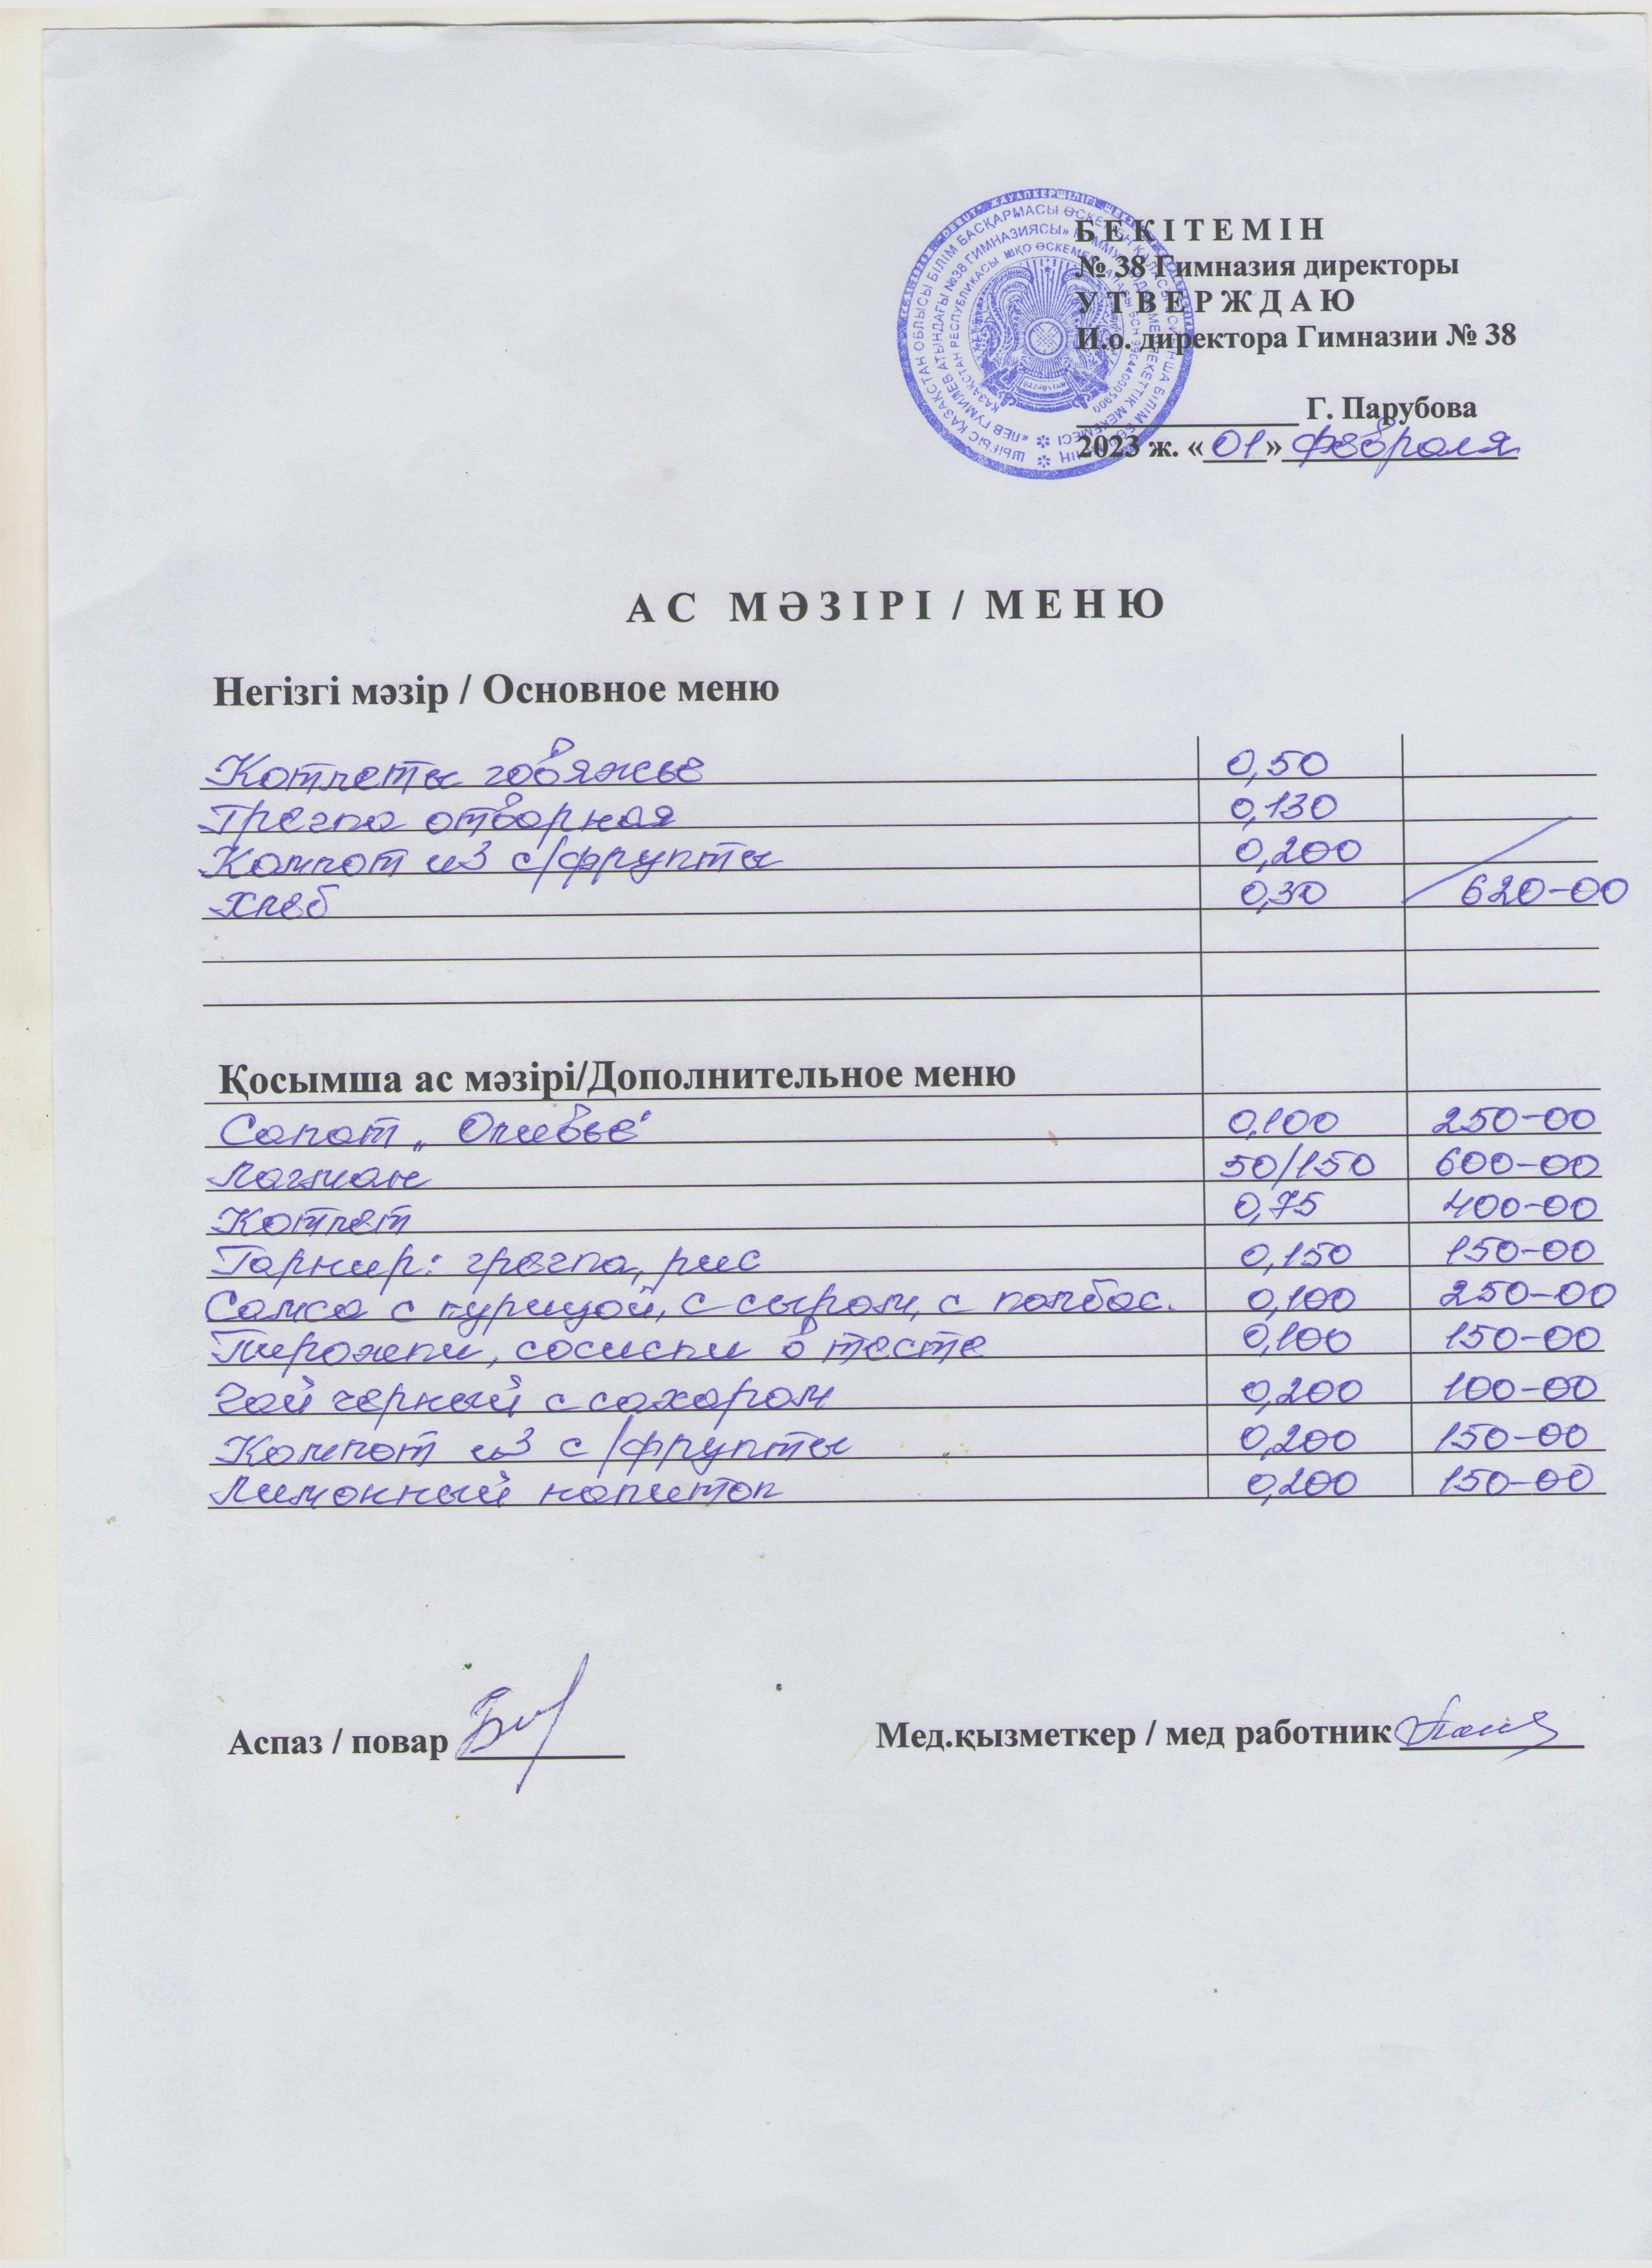 БЕКІТЕМІН
№ 38 Гимназия директоры
УТВЕРЖДАЮ
И.о. директора Гимназии № 38
____________ Г. Парубова
2023 ж. «01» февраля
АС МӘЗІРІ / МЕНЮ
Негізгі мәзір / Основное меню
Котлеты говяжье 0,50
Гречка отворная 0,130
Компот из с/фрукты 0,200
Хлеб 0,30 620-00
Қосымша ас мәзірі/Дополнительное меню
Салат „Оливье" 0,100 250-00
Лагман 50/150 600-00
Котлет 0,75 400-00
Гарнир: гречка, рис 0,150 150-00
Самса с курицой, с сыром, с колбас. 0,100 250-00
Пирожки, сосиски в тесте 0,100 150-00
Чай черный с сахаром 0,200 100-00
Компот из с/фрукты 0,200 150-00
Лимонный напиток 0,200 150-00
Аспаз / повар Мед.қызметкер / мед работник